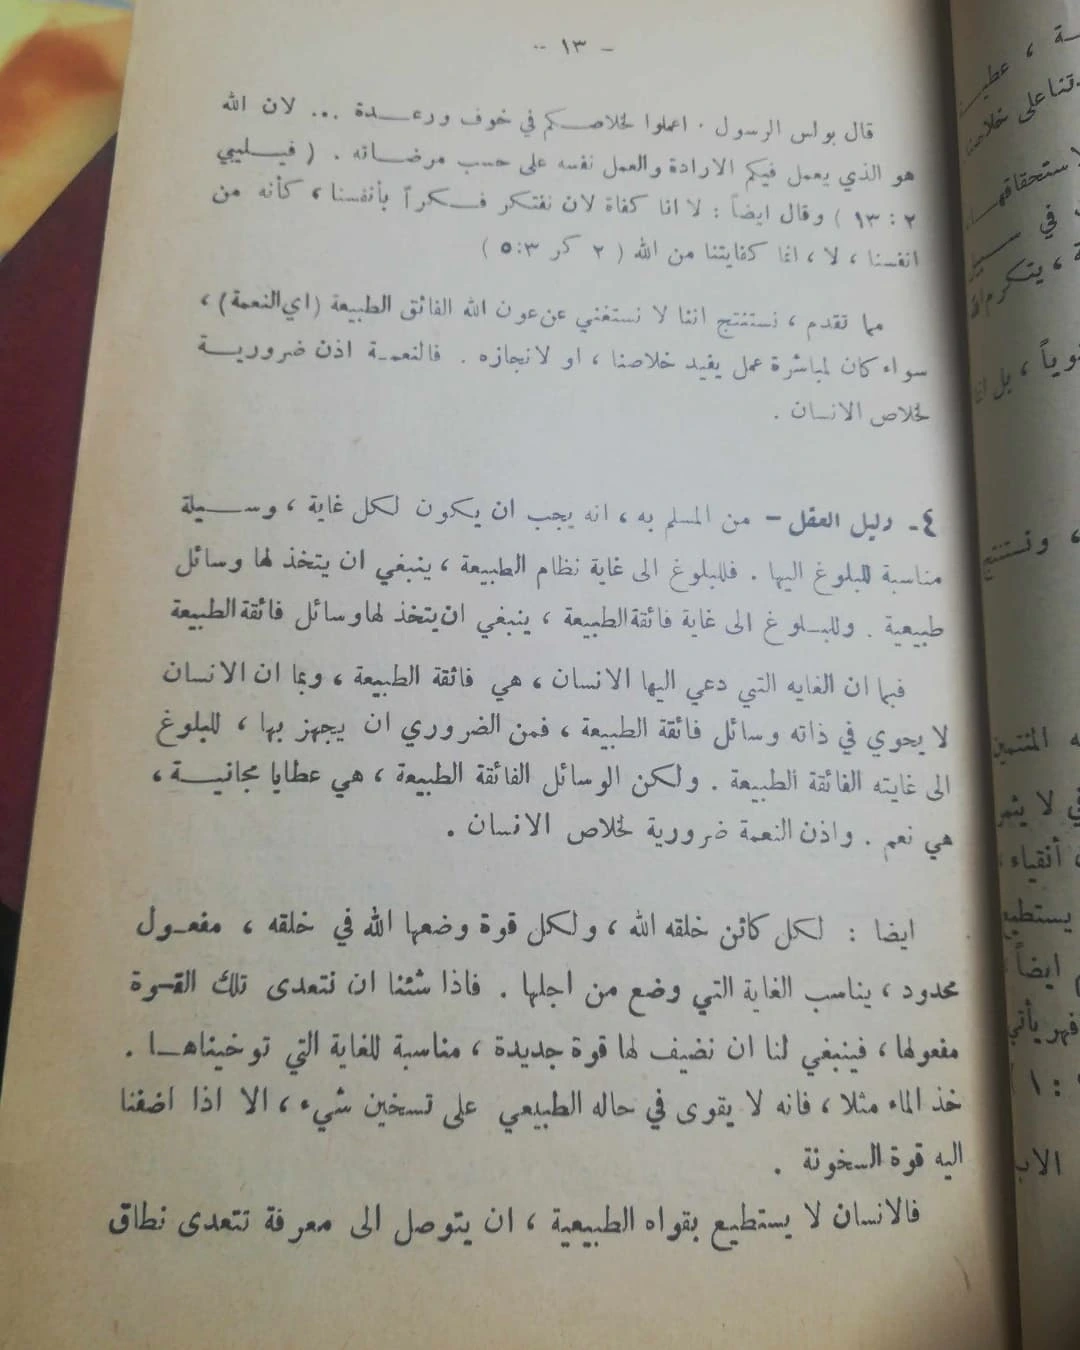 - ١٣ -
قال بولس الرسول . اعملوا لخلاصكم في خوف ورعدة ... لان الله
هو الذي يعمل فيكم الارادة والعمل نفسه على حسب مرضاته . ( فيليبي
٢ : ١٣ ) وقال ايضاً : لا انا كفاة لان نفتكر فكراً بأنفسنا ، كأنه من
انفسنا ، لا ، انما كفايتنا من الله ( ٢ كر ٣:٥ )
مما تقدم ، نستنتج اننا لا نستغني عن عون الله الفائق الطبيعة (اي النعمة) ،
سواء كان لمباشرة عمل يفيد خلاصنا ، او لانجازه . فالنعمة اذن ضرورية
لخلاص الانسان .
٤- دليل العقل - من المسلم به ، انه يجب ان يكون لكل غاية ، وسيلة
مناسبة للبلوغ اليها . فللبلوغ الى غاية نظام الطبيعة ، ينبغي ان يتخذ لها وسائل
طبيعية . وللبلوغ الى غاية فائقة الطبيعة ، ينبغي ان يتخذ لها وسائل فائقة الطبيعة
فبما ان الغايه التي دعي اليها الانسان ، هي فائقة الطبيعة ، وبما ان الانسان
لا يحوي في ذاته وسائل فائقة الطبيعة ، فمن الضروري ان يجهز بها ، للبلوغ
الى غايته الفائقة الطبيعة . ولكن الوسائل الفائقة الطبيعة ، هي عطايا مجانية ،
هي نعم . واذن النعمة ضرورية لخلاص الانسان .
ايضا : لكل كائن خلقه الله ، ولكل قوة وضعها الله في خلقه ، مفعول
محدود ، يناسب الغاية التي وضع من اجلها . فاذا شئنا ان تتعدى تلك القوة
مفعولها ، فينبغي لنا ان نضيف لها قوة جديدة ، مناسبة للغاية التي توخيناها .
خذ الماء مثلا ، فانه لا يقوى في حاله الطبيعي على تسخين شيء ، الا اذا اضفنا
اليه قوة السخونة .
فالانسان لا يستطيع بقواه الطبيعية ، ان يتوصل الى معرفة تتعدى نطاق